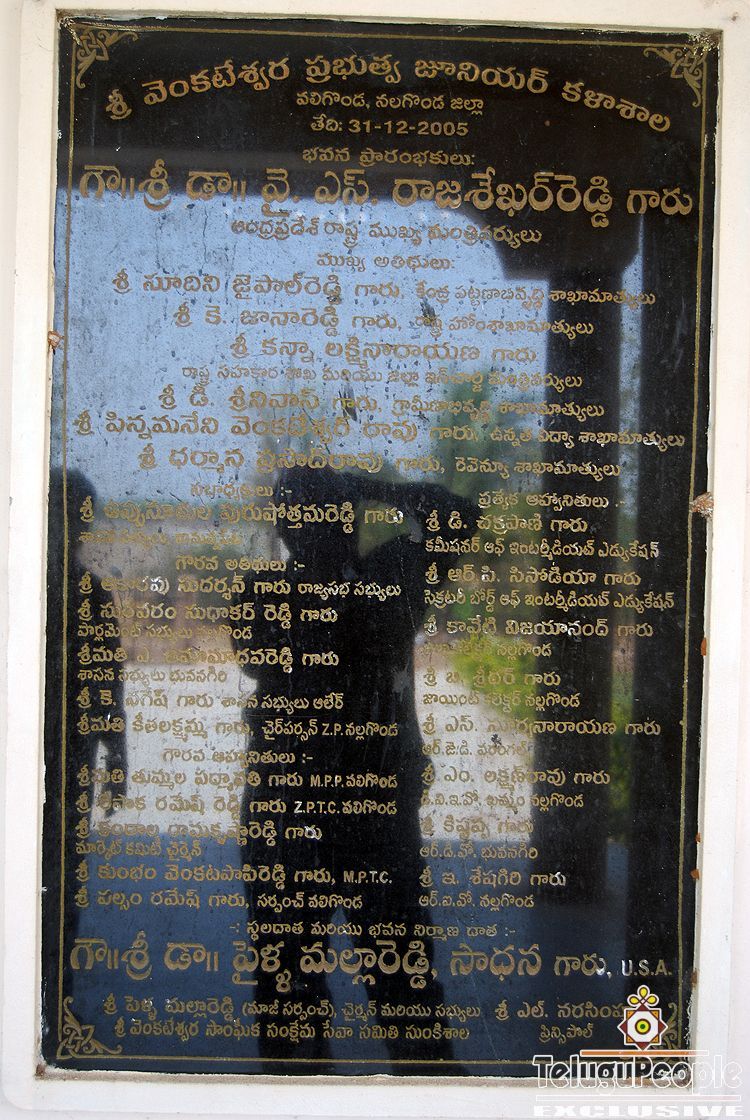 శ్రీ వెంకటేశ్వర ప్రభుత్వ జూనియర్ కళాశాల
వలిగొండ, నలగొండ జిల్లా
తేది: 31-12-2005
భవన ప్రారంభకులు:
గౌ॥శ్రీ డా॥ వై. ఎస్. రాజశేఖర్‌రెడ్డి గారు
ఆంధ్రప్రదేశ్ రాష్ట్ర ముఖ్య మంత్రివర్యులు
ముఖ్య అతిథులు:
శ్రీ సూదిని జైపాల్‌రెడ్డి గారు, కేంద్ర పట్టణాభివృద్ధి శాఖామాత్యులు
శ్రీ కె. జానారెడ్డి గారు, రాష్ట్ర హోంశాఖామాత్యులు
శ్రీ కన్నా లక్ష్మీనారాయణ గారు
రాష్ట్ర సహకార శాఖ మరియు జిల్లా ఇన్‌చార్జి మంత్రివర్యులు
శ్రీ డి. శ్రీనివాస్ గారు, గ్రామీణాభివృద్ధి శాఖామాత్యులు
శ్రీ పిన్నమనేని వెంకటేశ్వర రావు గారు, ఉన్నత విద్యా శాఖామాత్యులు
శ్రీ ధర్మాన ప్రసాదరావు గారు, రెవెన్యూ శాఖామాత్యులు
సభాధ్యక్షులు :-
శ్రీ ఉప్పునూతుల పురుషోత్తమరెడ్డి గారు
గౌరవ అతిథులు :-
శ్రీ సుదర్శన్ గారు రాజ్యసభ సభ్యులు
శ్రీ సురవరం సుధాకర్ రెడ్డి గారు
పార్లమెంట్ సభ్యులు నల్గొండ
శ్రీమతి ఎ. ఉమామాధవరెడ్డి గారు
శాసన సభ్యులు భువనగిరి
శ్రీ కె. నగేష్ గారు శాసన సభ్యులు ఆలేర్
శ్రీమతి కేతలక్ష్మమ్మ గారు, చైర్‌పర్సన్ Z.P. నల్లగొండ
గౌరవ ఆహ్వానితులు :-
శ్రీమతి తుమ్మల పద్మావతి గారు M.P.P. వలిగొండ
శ్రీ రమేష్ రెడ్డి గారు Z.P.T.C. వలిగొండ
శ్రీ కుందాల రామకృష్ణారెడ్డి గారు
మార్కెట్ కమిటీ చైర్మన్
శ్రీ కుంభం వెంకటపాపిరెడ్డి గారు, M.P.T.C.
శ్రీ పల్సం రమేష్ గారు, సర్పంచ్ వలిగొండ
ప్రత్యేక ఆహ్వానితులు :-
శ్రీ డి. చక్రపాణి గారు
కమీషనర్ ఆఫ్ ఇంటర్మీడియట్ ఎడ్యుకేషన్
శ్రీ ఆర్.పి. సిసోడియా గారు
సెక్రటరీ బోర్డ్ ఆఫ్ ఇంటర్మీడియట్ ఎడ్యుకేషన్
శ్రీ కావేటి విజయానంద్ గారు
జిల్లా కలెక్టర్ నల్లగొండ
శ్రీ బి. శ్రీధర్ గారు
జాయింట్ కలెక్టర్ నల్లగొండ
శ్రీ ఎస్. సూర్యనారాయణ గారు
ఆర్.జె.డి. వరంగల్
శ్రీ ఎం. లక్ష్మణ్‌రావు గారు
డి.వి.ఇ.వో. ఖమ్మం నల్గొండ
శ్రీ కిష్టప్ప గారు
ఆర్.డి.వో. భువనగిరి
శ్రీ ఇ. శేషగిరి గారు
ఆర్.ఐ.వో. నల్గొండ
-: స్థలదాత మరియు భవన నిర్మాణ దాత :-
గౌ॥శ్రీ డా॥ పైళ్ళ మల్లారెడ్డి, సాధన గారు, U.S.A.
శ్రీ పైళ్ళ మల్లారెడ్డి (మాజీ సర్పంచ్), చైర్మన్ మరియు సభ్యులు శ్రీ ఎల్.
శ్రీ వెంకటేశ్వర సాంఘిక సంక్షేమ సేవా సమితి సుంకిశాల ప్రిన్సిపాల్
TeluguPeople
EXCLUSIVE